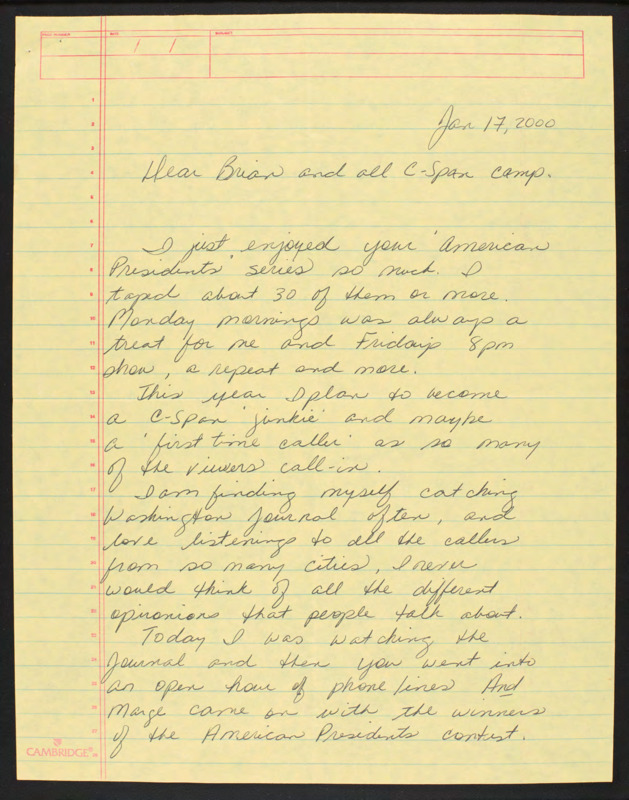 DATE
Jan 17, 2000
Dear Brian and all C-Span camp.
I just enjoyed your 'American
Presidents' series so much. I
taped about 30 of them or more.
Monday mornings was always a
treat for me and Fridays 8pm
show, a repeat and more.
This year I plan to become
a C-Span 'junkie' and maybe
a 'first time caller' as so many
of the viewers call-in.
I am finding myself catching
Washington Journal often, and
love listenings to all the callers
from so many cities, I never
would think of all the different
opinonions that people talk about.
Today I was watching the
Journal and then you went into
an open hour of phone lines And
Marge came on with the winners
of the American Presidents contest.
CAMBRIDGE®